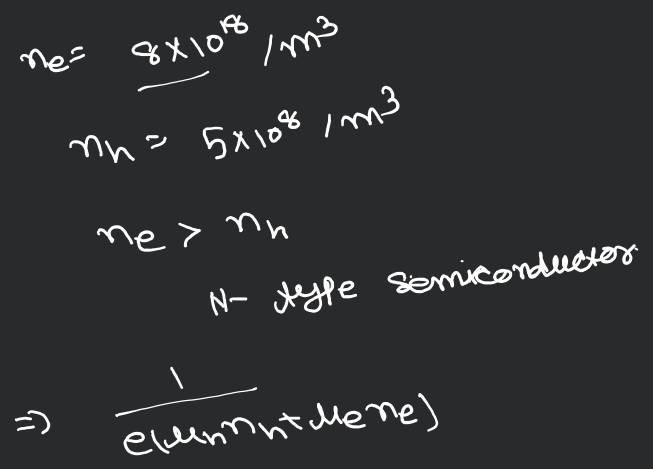 ne= 8×10¹⁸ /m³
nh = 5×10⁸ /m³
ne > nh
N- type semiconductor
=> 1/e(μhnh+μene)